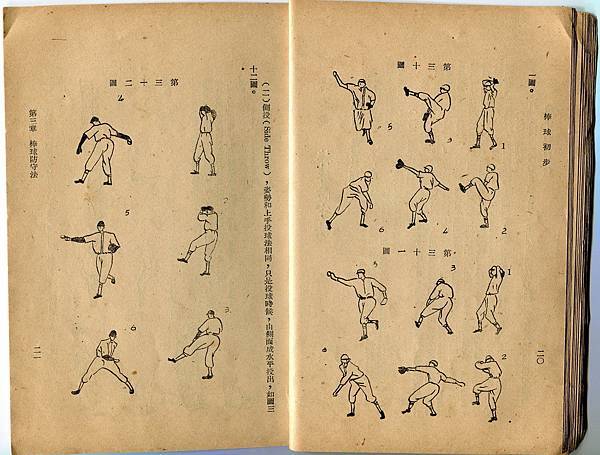 棒球初步
二〇
一圖。
第三十圖
1
3
5
2
4
6
第三十一圖
1
3
5
2
6
(二)側投(Side Throw),姿勢和上手投球法相同,只是投球時候,由側面成水平投出,如圖三
十二圖。
第三十二圖
2
3
4
5
6
第三章 棒球防守法
二一